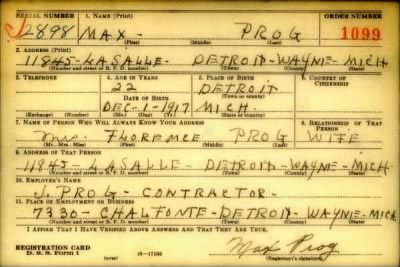 SERIAL NUMBER 1. NAME (Print) ORDER NUMBER
2898 MAX - PROG 1099
(First) (Middle) (Last)
2. ADDRESS (Print)
11845-LASALLE- DETROIT-WAYNE-MICH
(Number and street or R. F. D. number) (Town) (County) (State)
3. TELEPHONE 4. AGE IN YEARS 5. PLACE OF BIRTH 6. COUNTRY OF CITIZENSHIP
22 DETROIT
DATE OF BIRTH (Town or county)
DEC-1-1917 MICH.
(Exchange) (Number) (Mo.) (Day) (Yr.) (State or country)
7. NAME OF PERSON WHO WILL ALWAYS KNOW YOUR ADDRESS 8. RELATIONSHIP OF THAT PERSON
Mrs. FLORENCE PROG WIFE
(Mr., Mrs., Miss) (First) (Middle) (Last)
9. ADDRESS OF THAT PERSON
11845-LASALLE-DETROIT-WAYNE-MICH
(Number and street or R. F. D. number) (Town) (County) (State)
10. EMPLOYER'S NAME
J. PROG- CONTRACTOR-
11. PLACE OF EMPLOYMENT OR BUSINESS
7330-CHALFONTE-DETROIT-WAYNE-MICH
(Number and street or R. F. D. number) (Town) (County) (State)
I AFFIRM THAT I HAVE VERIFIED ABOVE ANSWERS AND THAT THEY ARE TRUE.
REGISTRATION CARD
D. S. S. Form 1 (over) Max Prog
(Registrant's signature)